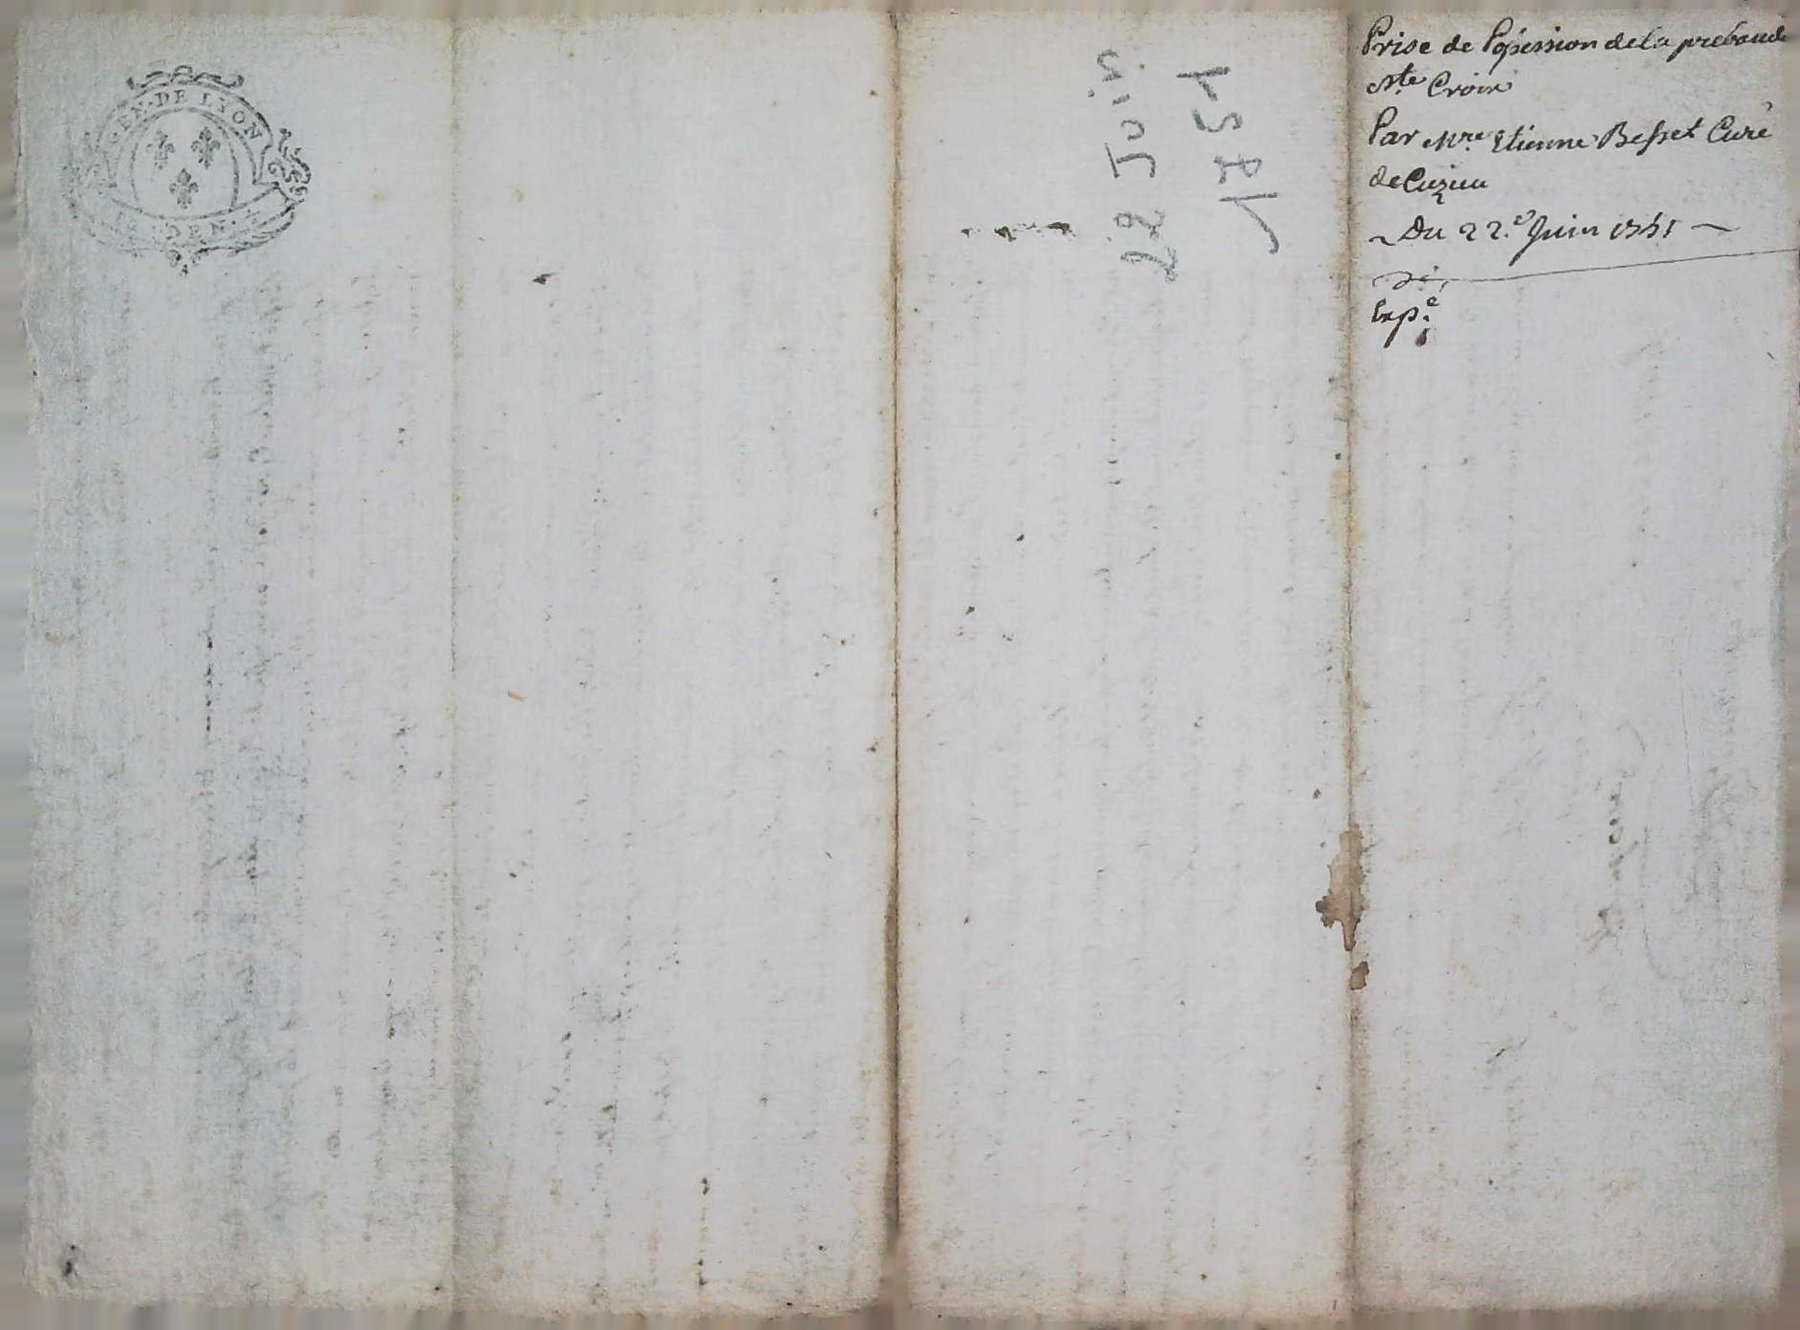 GEN·DE LYON
22 Juin
1751
Prise de Possession de la prebande
Ste Croix
Par Mre Etienne Besset Curé
de Cuzieu
Du 22.e Juin 1751
Exp.e